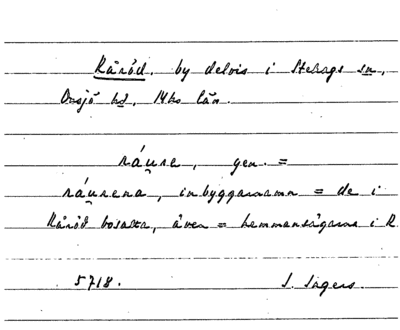 Råröd, by delvis i Stehags sn,
Onsjö hd, Mhs län.
ráu̯re, gen. =
ráu̯rena, inbyggarnamn = de i
Råröd bosatta, även = hemmansägarna i R.
5718. S. Ingers.